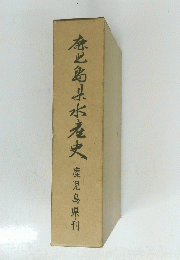 鹿児島県水産史
鹿児島県刊